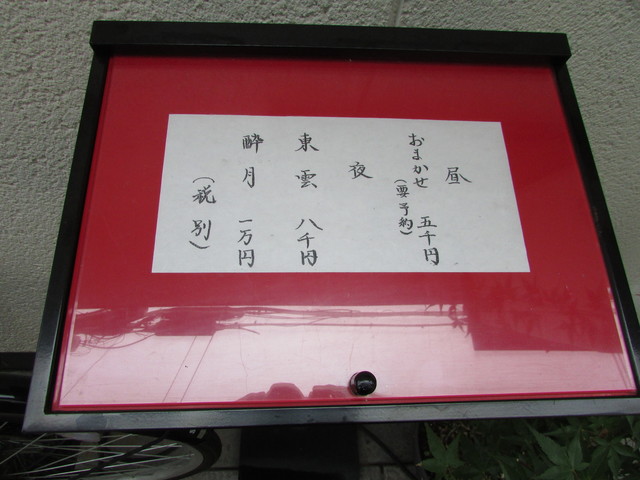 昼
おまかせ 五千円
(要予約)
夜
東雲 八千円
酔月 一万円
(税別)